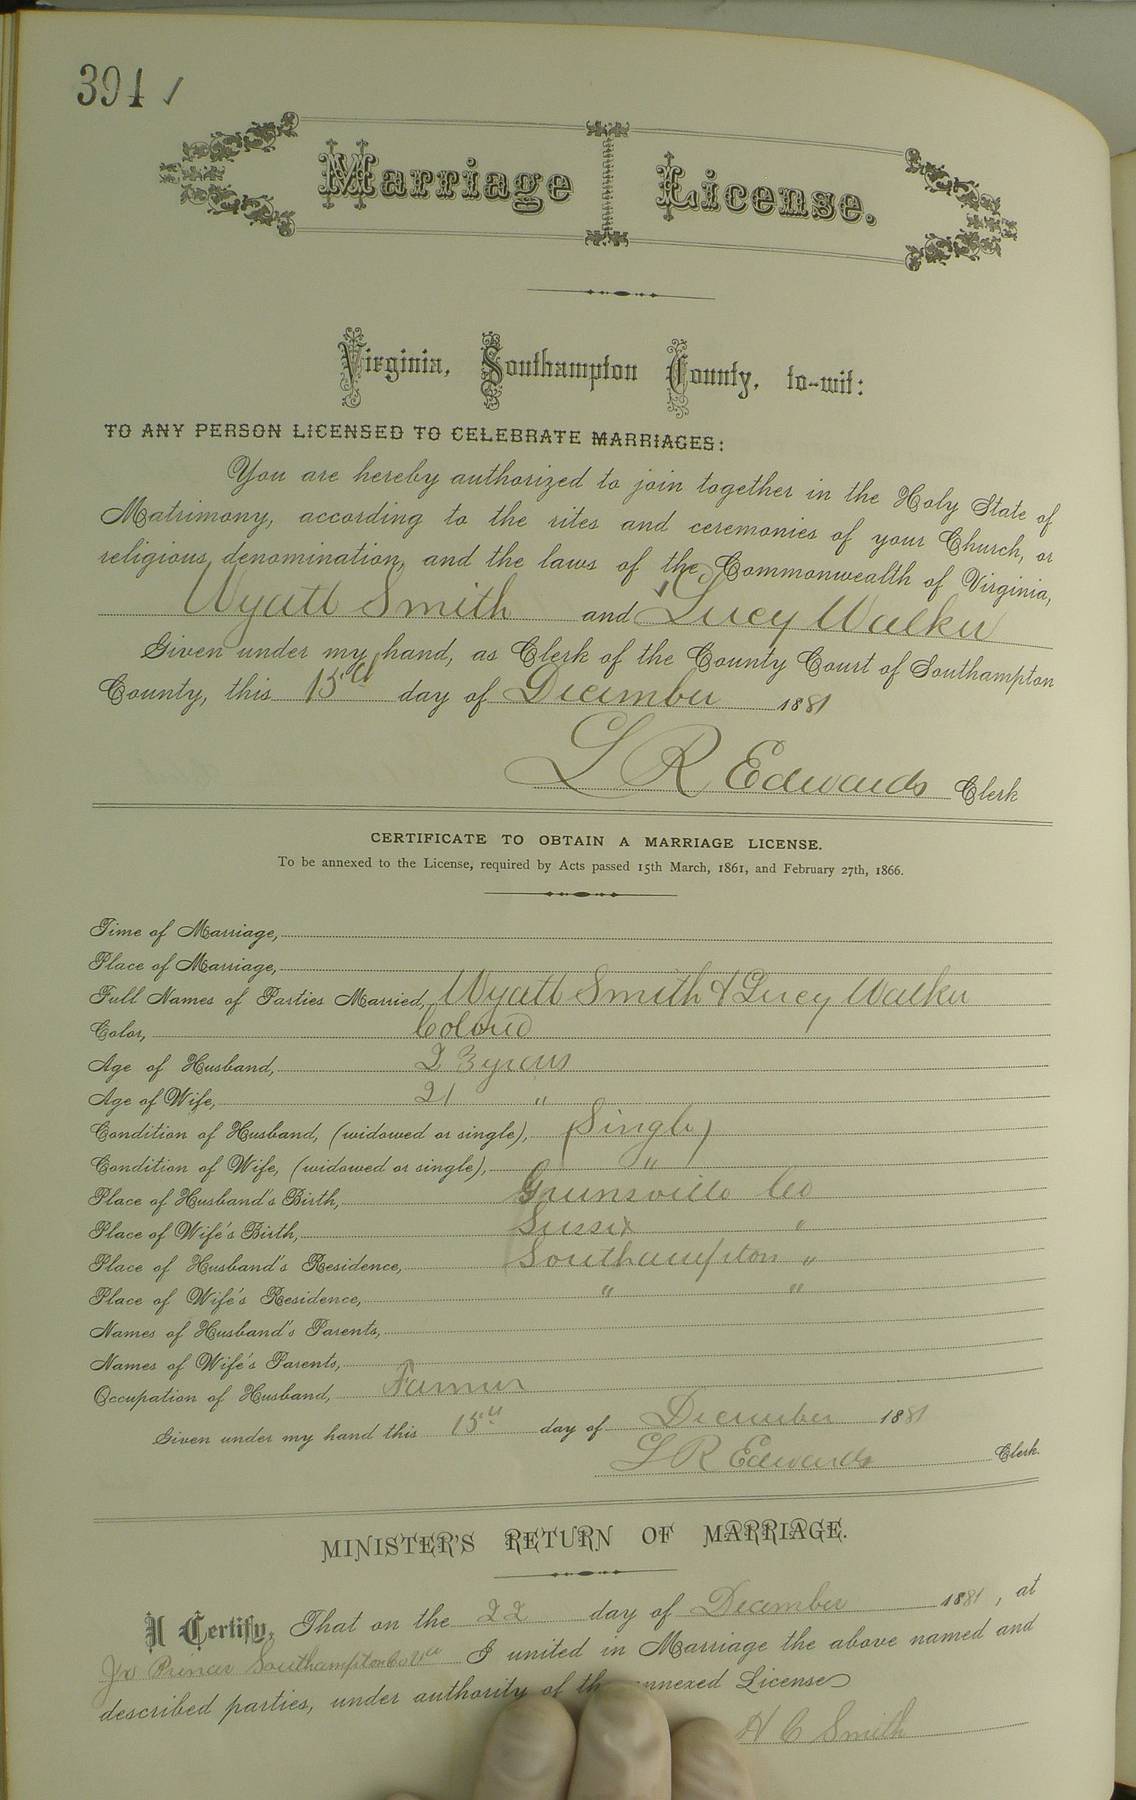 394 ✓
Marriage License.
Virginia, Southampton County, to-wit:
TO ANY PERSON LICENSED TO CELEBRATE MARRIAGES:
You are hereby authorized to join together in the Holy State of
Matrimony, according to the rites and ceremonies of your Church, or
religious denomination, and the laws of the Commonwealth of Virginia,
Wyatt Smith and Lucy Walker
Given under my hand, as Clerk of the County Court of Southampton
County, this 15th day of December 1881
L R Edwards Clerk
CERTIFICATE TO OBTAIN A MARRIAGE LICENSE.
To be annexed to the License, required by Acts passed 15th March, 1861, and February 27th, 1866.
Time of Marriage,
Place of Marriage,
Full Names of Parties Married, Wyatt Smith & Lucy Walker
Color, Colored
Age of Husband, 23 years
Age of Wife, 21 "
Condition of Husband, (widowed or single), (Single)
Condition of Wife, (widowed or single), "
Place of Husband's Birth, Greensville Co
Place of Wife's Birth, Sussex "
Place of Husband's Residence, Southampton "
Place of Wife's Residence, " "
Names of Husband's Parents,
Names of Wife's Parents,
Occupation of Husband, Farmer
Given under my hand this 15th day of December 1881
L R Edwards Clerk.
MINISTER'S RETURN OF MARRIAGE.
I Certify, That on the 22 day of December 1881, at
Southampton Co Va I united in Marriage the above named and
described parties, under authority of the annexed License
H C Smith